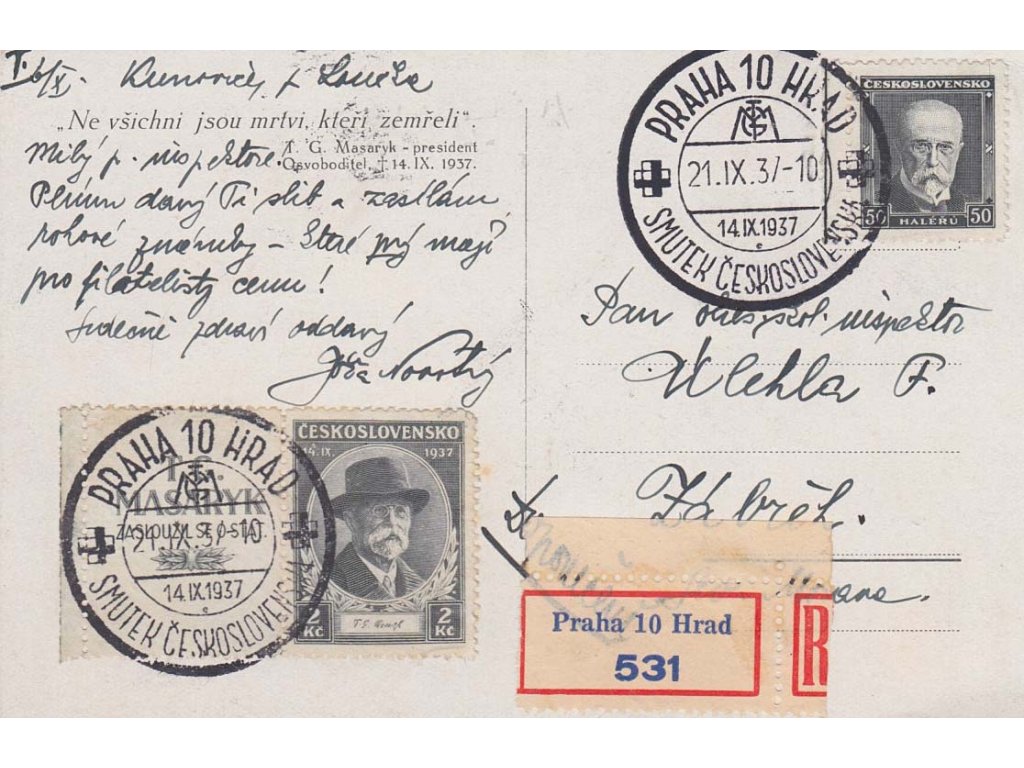 6/X. Kunovice p. Loučka
„Ne všichni jsou mrtvi, kteří zemřeli".
T. G. Masaryk - president
Osvoboditel, † 14. IX. 1937.
Milý p. inspektore.
Plním daný Ti slib a zasílám
rohové známky – které prý mají
pro filatelisty cenu!
Srdečně zdraví oddaný
Jóža Novotný
PRAHA 10 HRAD
TGM
21.IX.37-10
14.IX.1937
e
SMUTEK ČESKOSLOVENSKA
ČESKOSLOVENSKO
50 HALÉŘŮ 50
Pan okres. škol. inspektor
Úlehla F.
Zábřeh.
Morava.
PRAHA 10 HRAD
TGM
21.IX.37-10
14.IX.1937
e
SMUTEK ČESKOSLOVENSKA
T. G.
MASARYK
ZASLOUŽIL SE O STÁT.
ČESKOSLOVENSKO
14. IX. 1937
2 KČ 2 KČ
Praha 10 Hrad
531
R